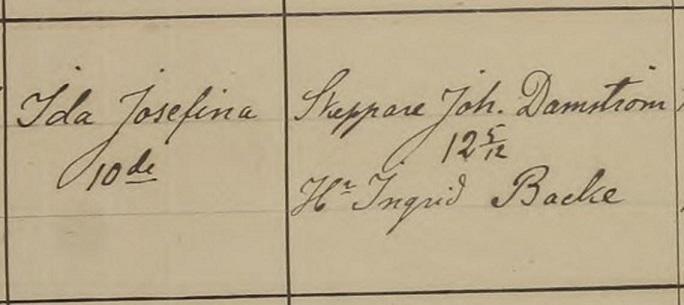 Ida Josefina
10de
Skeppare Joh. Damström
12 5/12
Hr Ingrid Backe